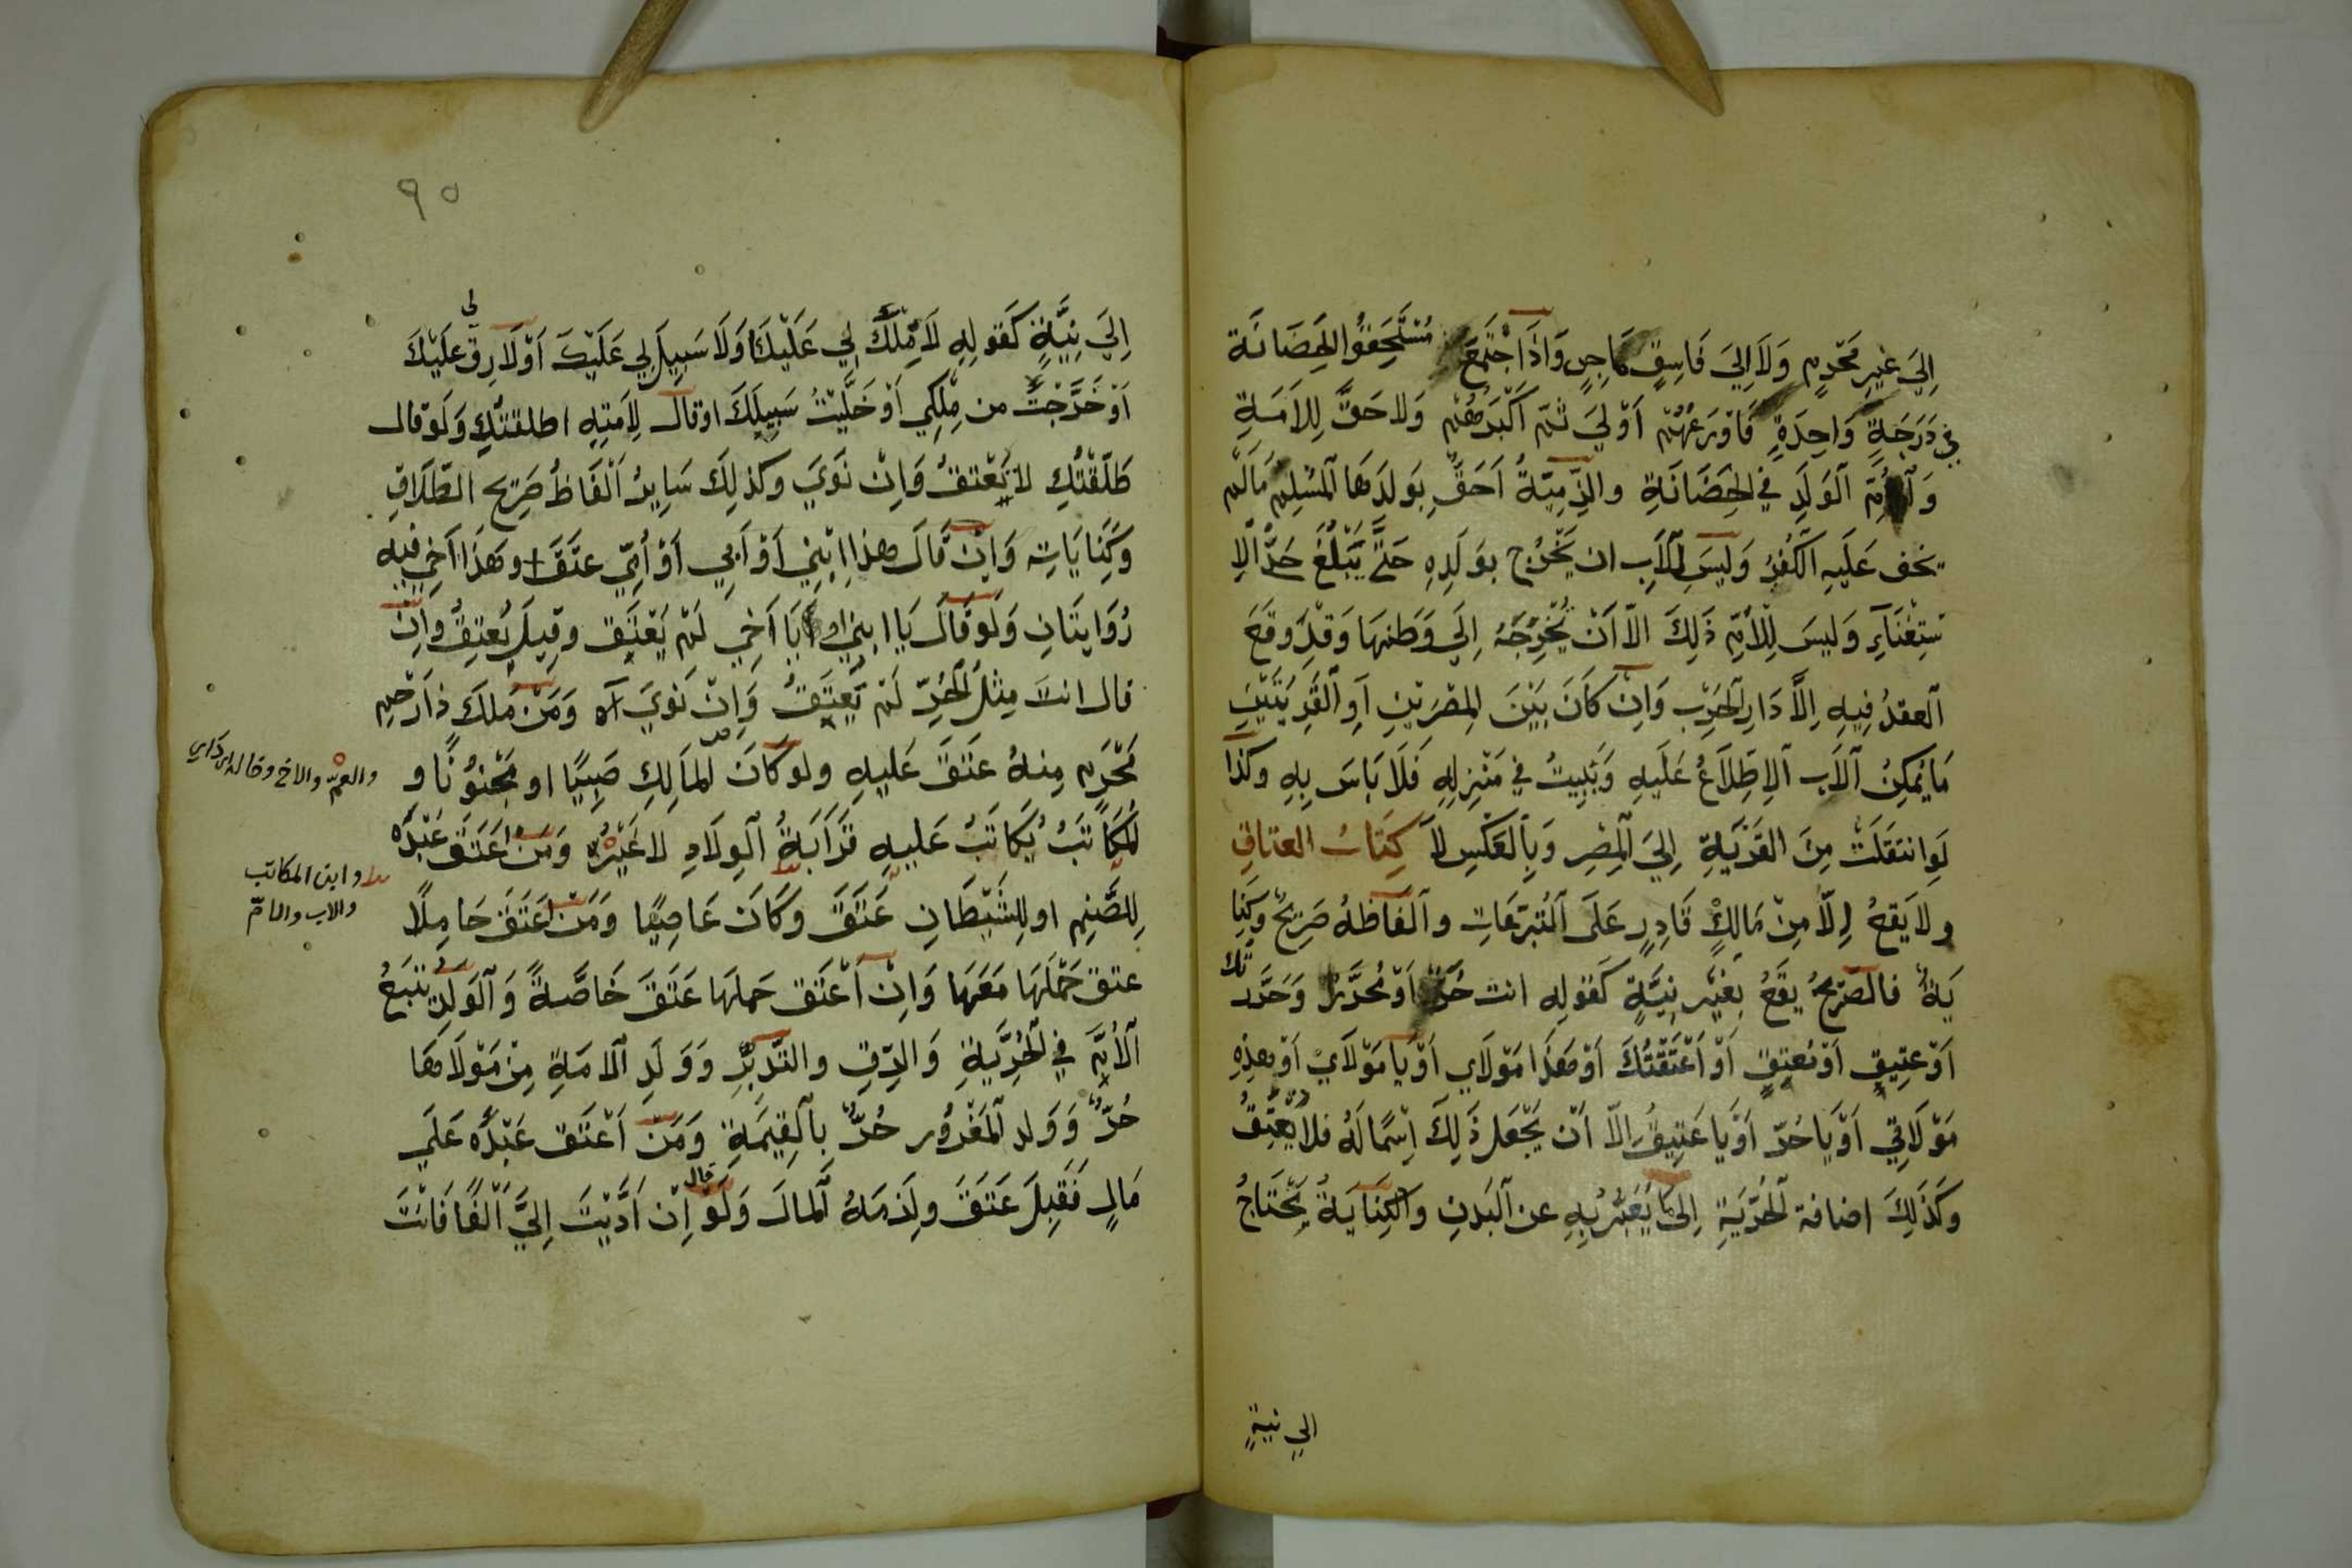 اِلَى غيرِ مَحْرمٍ وَلَا اِلَى فَاسِقٍ مَاجِنٍ وَاِذَا اجْتَمَعَ مُسْتَحِقُّو الحَضَانَة
في دَرَجَةٍ وَاحِدَةٍ فَاوْرَعُهُمْ اَوْلَى ثمّ اَكْبَرُهُمْ وَلا حَقَّ لِلاَمَةِ
وَاُمِّ الوَلَدِ في الحَضَانَةِ والذِّمِيّةُ اَحَقُّ بوَلَدِهَا المُسْلِم مَالَم
يخف عَلَيهِ الكُفرُ وَلَيسَ لِلاَبِ ان يَخْرُج بوَلَدِهِ حَتَّى يَبْلُغَ حَدَّ الاِ
سْتِغْنَآءِ وَليسَ لِلْاُمِّ ذَلِكَ الاّ اَنْ تُخْرِجَهُ اِلَى وَطنِهَا وَقَدْ وقعَ
العقدُ فِيهِ اِلَّا دَارَ الحَرْبِ وَاِنْ كَانَ بَيْنَ المِصْرَيْنِ اَوِ القَرْيَتَيْنِ
مَا يُمكِنُ الاَب الاِطِّلَاعُ عَلَيهِ وَيَبِيتُ في مَنْزِلِهِ فَلَا بَاسَ بِهِ وكَذَا
لَوِ انتقَلَتْ مِنَ القَرْيَةِ اِلَى المِصْرِ وَبِالعَكْسِ لَا كِتَابُ العتاقِ
ولا يَقعُ اِلّا مِنْ مَالكٍ قَادِرٍ عَلَى التَّبرّعَاتِ والفَاظهُ صَرِيحٌ وكِنَا
يَةٌ فالصّريحُ يَقَعُ بِغَيْرِ نِيَّةٍ كَقولِه انت حُرٌّ اَوْ مُحَرَّرٌ وَحَرَّرْ تك
اَوْ عتِيقٌ اَوْ مُعتَقٌ اَوْ اَعْتَقْتُكَ اَوْ هَذَا مَوْلَاي اَوْ يَا مَوْلَايْ اَوْ هذِهِ
مَوْلَاتِي اَوْ يَا حُرّ اَوْ يَا عَتِيقُ اِلاّ اَنْ يَجْعَل ذَلِكَ اِسْمًا لَهُ فلا يَعْتِقُ
وَكَذَلِكَ اضافة الحُرّيَةِ اِلَى مَا يُعَبَّرُ بِهِ عن البَدنِ والكِنَايَةُ يَحْتَاجُ
الي نيةٍ
٩٥
اِلَى نِيَّةٍ كَقولِهِ لَا مِلْكَ لِي عَلَيْكَ اَوْ لَا سَبِيلَ لِي عَلَيْكَ اَوْ لَا رِقّ لي عَلَيْكَ
اَوْ خَرَجْتَ من مِلْكِي اَوْ خَلَّيْتُ سَبِيلَكَ اوْ قال لِاَمَتِهِ اطلقتُكِ وَلَوْ قال
طَلَّقْتُكِ لا يَعْتقُ وَاِنْ نَوَى وكذلِكَ سَايِرُ اَلْفَاظُ صَرِيح الطّلَاقِ
وكِنَايَاتِه وَاِنْ قَالَ هذا اِبْنِي اَوْ اَبِي اَوْ اُمّي عتَقَ وهَذَا اَخي فيهِ
رُوَايتَانِ وَلَوْ قَالَ يَا ابني او يَا اَخِي لَمْ يَعْتِق وقِيلَ يُعتِقُ وَاِنْ
قال انتَ مِثلُ الحُرِّ لَمْ يَعتِقْ وَاِنْ نَوَى آه وَمَن مَلَكَ ذَا رَحِمٍ
مَحْرَمٍ مِنهُ عَتقَ عَليهِ ولو كَانَ المَالِك صَبِيًا او مَجْنونًا و
المكَاتَبُ يُكَاتَبُ عَليهِ قَرَابَةُ الوِلَادِ لا غَيْرُ وَمَنْ اَعتَقَ عَبْدَهُ
لِلصَّنمِ او لِلشَّيْطَانِ عَتَقَ وكَانَ عَاصِيًا وَمَن اعتَقَ حَامِلًا
عتق حَمْلهَا مَعَهَا وَاِن اَعْتَق حَملهَا عَتَقَ خَاصَّةً وَالوَلَدُ يتبَعُ
الاُمَّ في الحُرِّيَةِ وَالرّقِ والتّدبيرِ وَوَلَدِ الامَةِ مِنْ مَوْلَاهَا
حُرٌّ وَوَلد المَغْرُور حُرٌّ بِالقِيمَةِ وَمَنْ اَعْتَق عَبْدَهُ عَلَى
مَالٍ فَقَبِلَ عَتَقَ ولَزمَهُ المالُ وَلَوْ قال اِنْ اَدَّيْتَ اِليَّ اَلْفًا فَانْتَ
والعمّ والاخ وخاله
وابن المكاتب
والاب والامّ